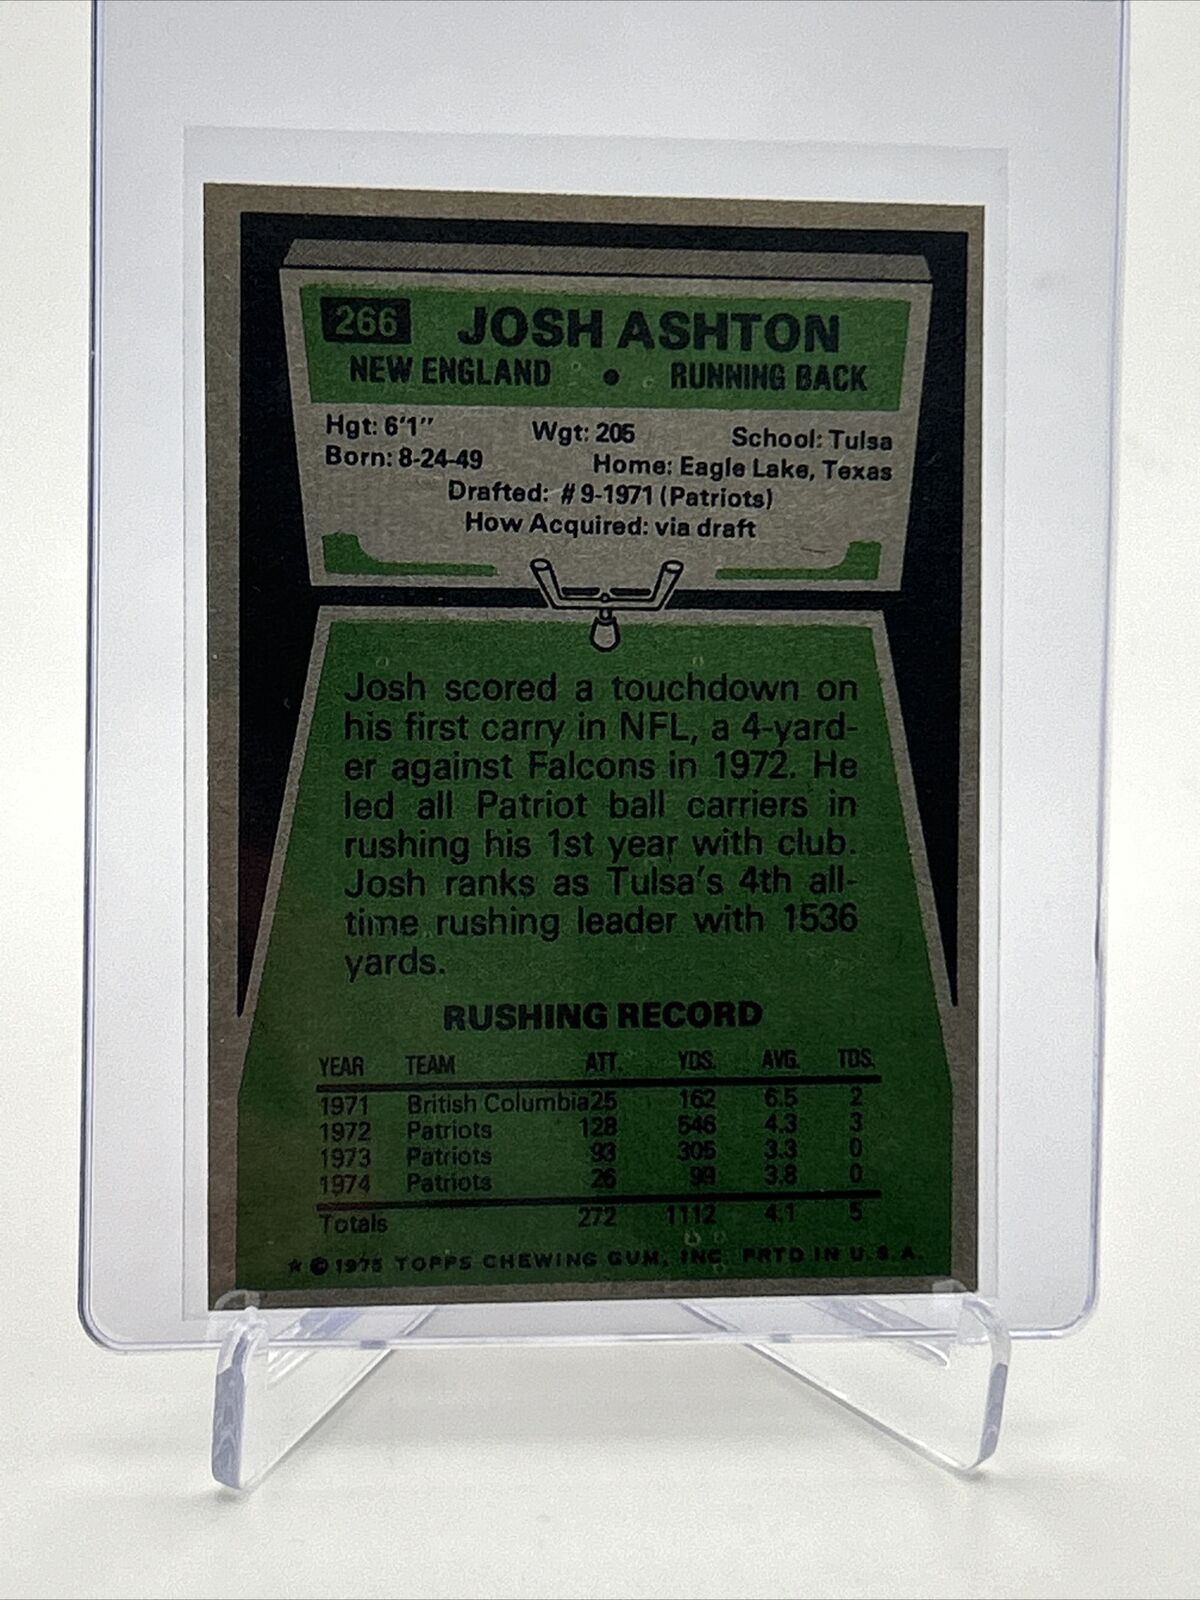 266 JOSH ASHTON
NEW ENGLAND • RUNNING BACK
Hgt: 6'1" Wgt: 205 School: Tulsa
Born: 8-24-49 Home: Eagle Lake, Texas
Drafted: #9-1971 (Patriots)
How Acquired: via draft
Josh scored a touchdown on
his first carry in NFL, a 4-yard-
er against Falcons in 1972. He
led all Patriot ball carriers in
rushing his 1st year with club.
Josh ranks as Tulsa's 4th all-
time rushing leader with 1536
yards.
RUSHING RECORD
YEAR TEAM ATT. YDS. AVG. TDS.
1971 British Columbia 25 162 6.5 2
1972 Patriots 128 546 4.3 3
1973 Patriots 93 305 3.3 0
1974 Patriots 26 99 3.8 0
Totals 272 1112 4.1 5
* © 1975 TOPPS CHEWING GUM, INC. PRTD IN U.S.A.